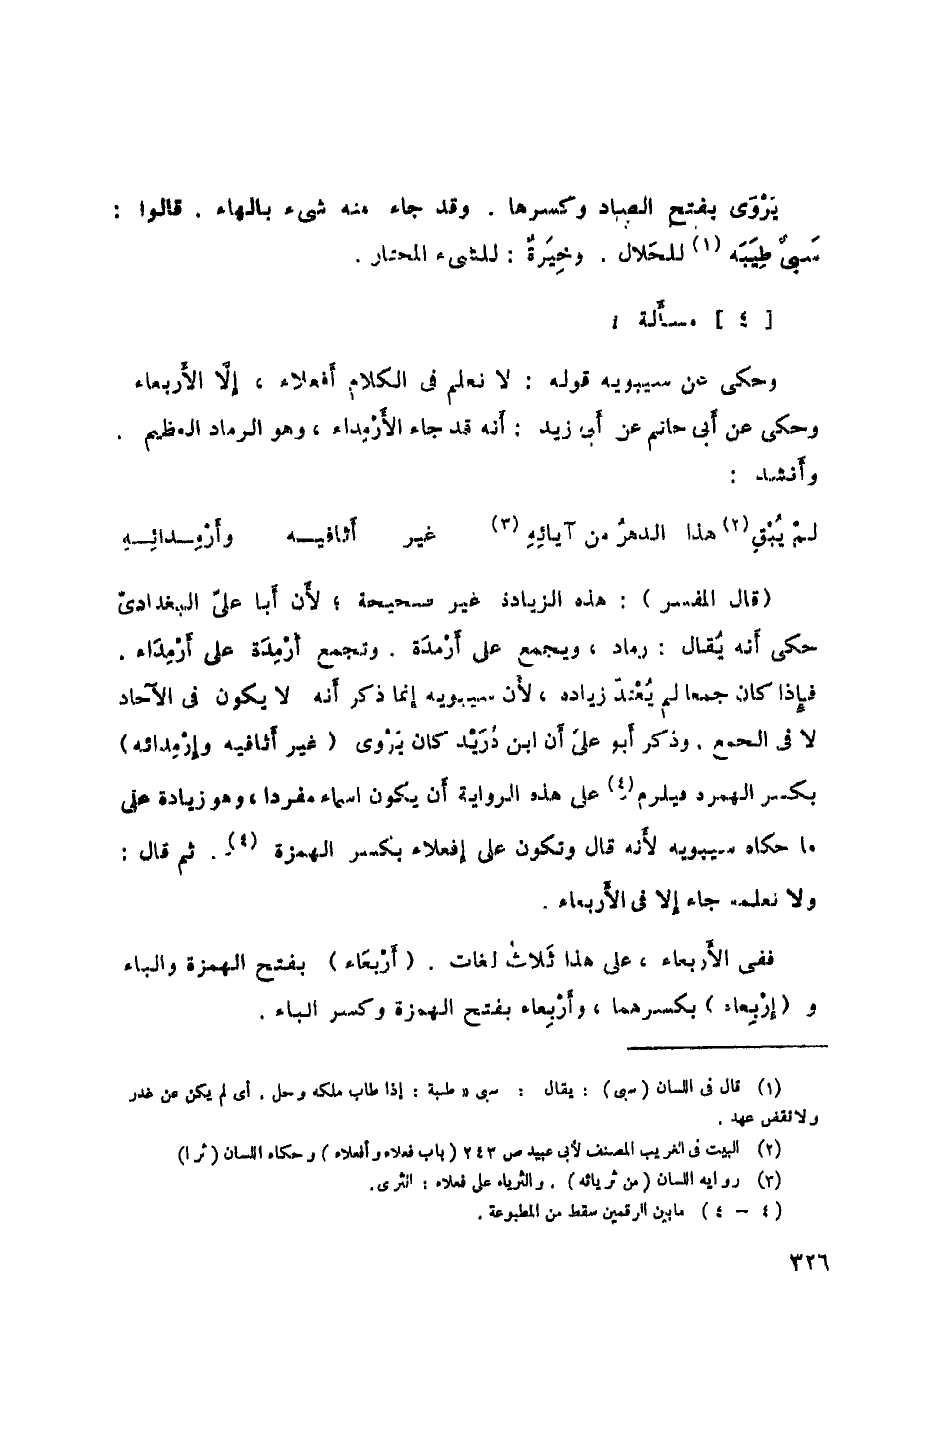 يَرْوَى بفتح الصاد وكسرها . وقد جاء منه شىء بالهاء . قالوا :
سَبىٌ طِيَبَه (١) للحَلال . وخِيَرةٌ : للشىء المختار .
[ ٤ ] مسألة :
وحكى عن سيبويه قوله : لا نعلم فى الكلام أَفعلاء ، إلَّا الأَربعاء
وحكى عن أَبى حاتم عن أَبى زيد : أَنه قد جاء الأَرْمِداء ، وهو الرماد العظيم .
وأَنشد :
لمْ يُبْقِ (٢) هذا الدهرُ من آيائِهِ (٣) غير أَثافيــه وأَرْمِــدائِــهِ
(قال المفسر ) : هذه الزيادة غير صحيحة ؛ لأَن أَبا علىّ البغدادىّ
حكى أَنه يُقال : رماد ، ويجمع على أَرْمدَة . وتجمع أَرْمِدَة على أَرْمِدَاء .
فإِذا كان جمعا لم يُعْتدّ زياده ، لأَن سيبويه إنما ذكر أَنه لا يكون فى الآحاد
لا فى الجمع . وذكر أَبو علىّ أَن ابن دُرَيْد كان يَرْوى ( غير أَثافيه وإِرْمِدائه )
بكسر الهمزه فيلزم (٤) على هذه الرواية أَن يكون اسماء مفردا ، وهو زيادة على
ما حكاه سيبويه لأَنه قال وتكون على إفعلاء بكسر الهمزة (٤) . ثم قال :
ولا نعلمه جاء إلا فى الأَربعاء .
ففى الأَربعاء ، على هذا ثَلاثُ لغات . ( أَرْبَعَاء ) بفتح الهمزة والباء
و ( إرْبِعاء ) بكسرهما ، وأَرْبِعاء بفتح الهمزة وكسر الباء .
(١) قال فى اللسان ( سبى ) : يقال : سبى « طيبة : إذا طاب ملكه وحل . أى لم يكن عن غدر
ولا نقض عهد .
(٢) البيت فى الغريب المصنف لأبى عبيد ص ٢٤٣ ( باب فعلاء وأفعلاء ) وحكاه اللسان ( ثرا )
(٣) روايه اللسان ( من ثريائه ) . والثرياء على فعلاء : الثرى .
( ٤ – ٤ ) مابين الرقمين سقط من المطبوعة .
٣٢٦